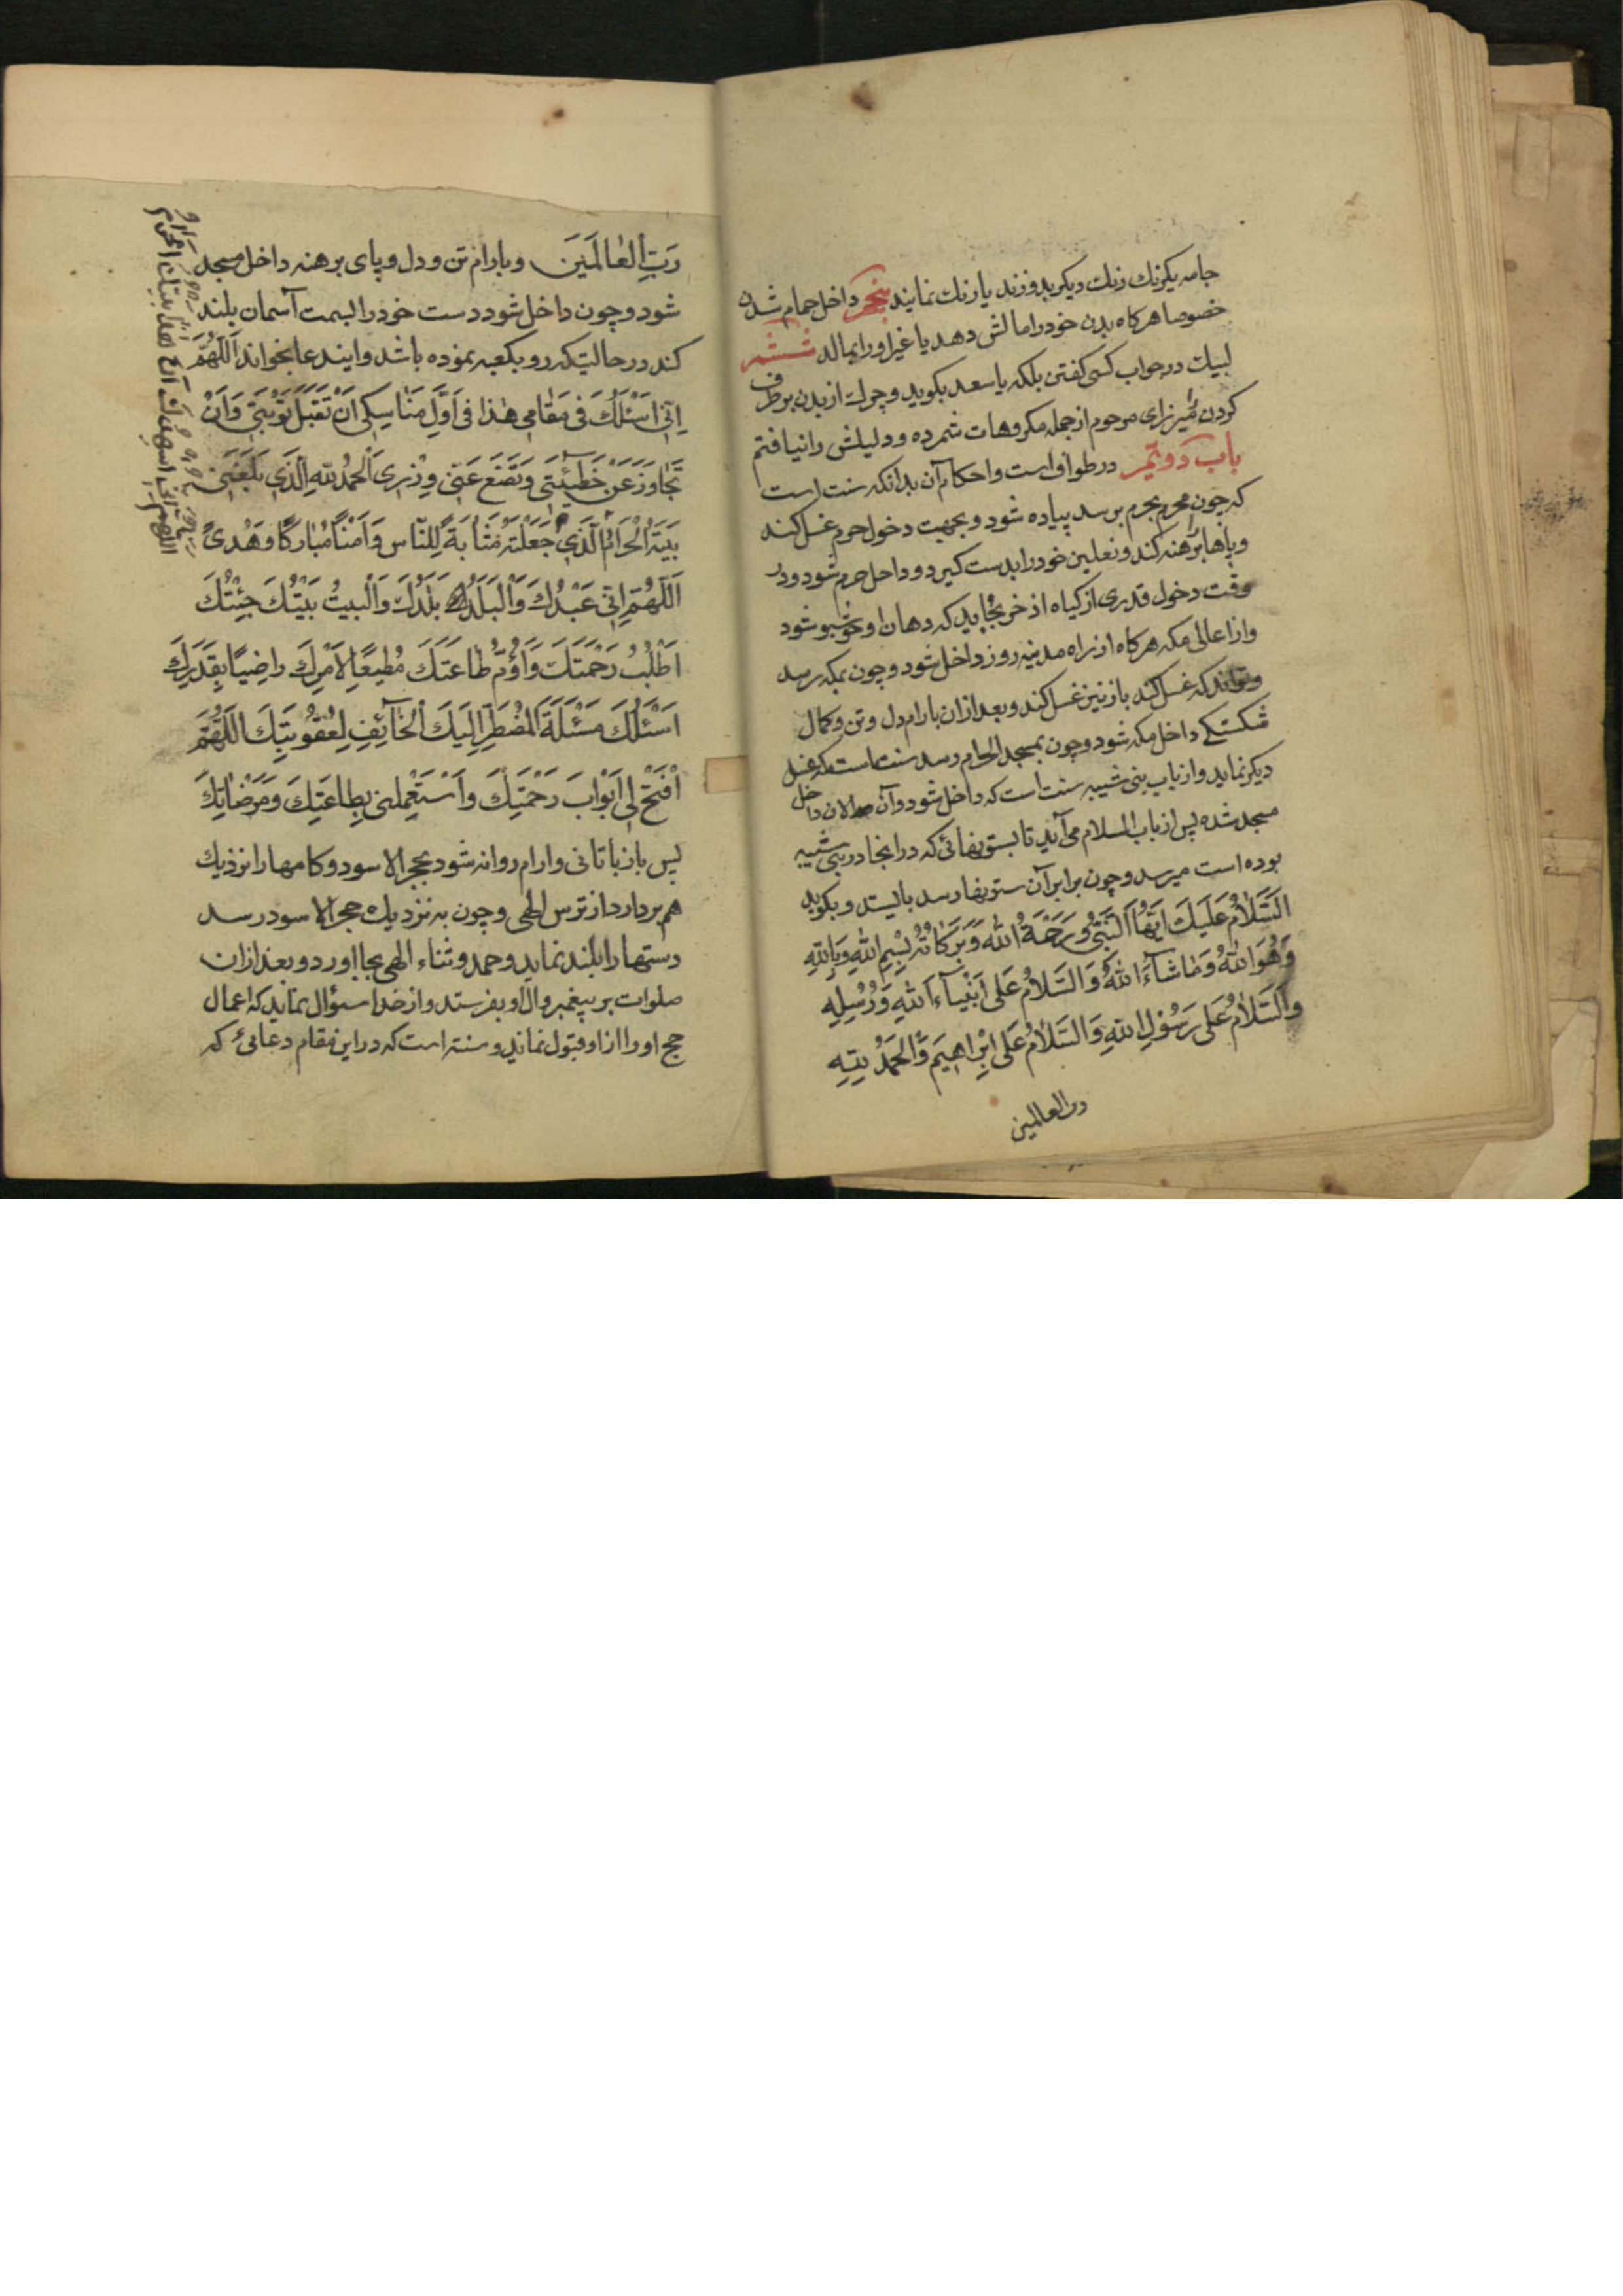 جامه یکرنك رنك دیکر بدوزند یا رنك نمایند پنجم داخل حمام شدن
خصوصا هرکاه بدن خود را مالش دهد یا غیر او را بمالد ششم
لبیك در جواب کسی کفتن بلکه یا سعد بکوید وچرك از بدن برطرف
کردن میرزای مرحوم از جمله مکروهات شمرده ودلیلش را نیافتم
باب دویم در طواف است واحکام آن بدانکه سنت است
که چون محرم بحرم برسد پیاده شود وبجهت دخول حرم غسل کند
وپاها برهنه کند ونعلین خود را بدست کیرد وداخل حرم شود ودر
وقت دخول قدری از کیاه اذخر بخاید که دهان او خوشبو شود
واز اعالی مکه هرکاه از راه مدینه رود داخل شود وچون بمکه رسد
وتواند که غسل کند باز نیز غسل کند وبعد از ان بارام دل وتن وکمال
شکستکے داخل مکه شود وچون بمسجد الحرام رسد سنت است که غسل
دیکر نماید واز باب بنی شیبه سنت است که داخل شود وآن الان داخل
مسجد شده پس از باب السلام می آید تا بستونهائی که در اینجا در بنی شیبه
بوده است میرسد وچون برابر آن ستونها رسد بایستد وبکوید
اَلسَّلامُ عَلَیْكَ اَیُّهَا النَّبِیُّ وَرَحْمَةُ اللهِ وَبَرَکاتُهُ بِسْمِ اللهِ وَبِاللهِ
وَهُوَ اللهُ وَمَاشآءَ اللهُ وَالسَّلامُ عَلی اَنْبِیآءِ اللهِ وَرُسُلِهِ
وَالسَّلامُ عَلی رَسُولِ اللهِ وَالسَّلامُ عَلی اِبْراهِیمَ وَالحَمْدُ لِلّهِ
رب العالمین
رَبِّ الْعٰالَمَینَ وبارام تن ودل وپای برهنه داخل مسجد
شود وچون داخل شود دست خود را بسمت آسمان بلند
کند در حالتیکه رو بکعبه نموده باشد وایندعا بخواند اَللّهُمَّ
اِنِّی اَسْئَلُكَ فی مَقٰامی هٰذا فی اَوَّلِ مَنٰاسِکی اَنْ تَقْبَلَ تَوْبَتی وَاَنْ
تَجٰاوَزَ عَنْ خَطیئَتی وَتَضَعَ عَنّی وِزْری اَلحَمْدُ لِلّهِ الَّذی بَلَّغَنی
بَیْتَهُ الْحَرامَ الَّذی جَعَلْتَهُ مَثٰابَةً لِلنّٰاسِ وَاَمْنًا مُبٰارَکًا وَهُدیً
اَللّهُمَّ اِنّی عَبْدُكَ وَالْبَلَدُ بَلَدُكَ وَالْبَیتُ بَیْتُكَ جِئْتُكَ
اَطْلُبُ رَحْمَتَكَ وَاَؤُمُّ طٰاعَتَكَ مُطیعًا لِاَمْرِكَ راضِیًا بِقَدَرِكَ
اَسْئَلُكَ مَسْئَلَةَ الْمُضْطَرِّ اِلَیكَ الْخآئِفِ لِعُقُوبَتِكَ اَللّهُمَّ
افْتَحْ لی اَبْوابَ رَحْمَتِكَ وَاسْتَعْمِلْنی بِطٰاعَتِكَ وَمَرْضٰاتِكَ
پس باز باتانی وارام روانه شود بحجر الاسود وکامها را نزدیك
هم بردارد از ترس الهی وچون به نزدیك حجر الاسود رسد
دستها را بلند نماید وحمد وثناء الهی بجا اورد وبعد از ان
صلوات بر پیغمبر وال او بفرستد واز خدا سئوال نماید که اعمال
حج او را از او قبول نماید وسنت است که در این مقام دعائی که